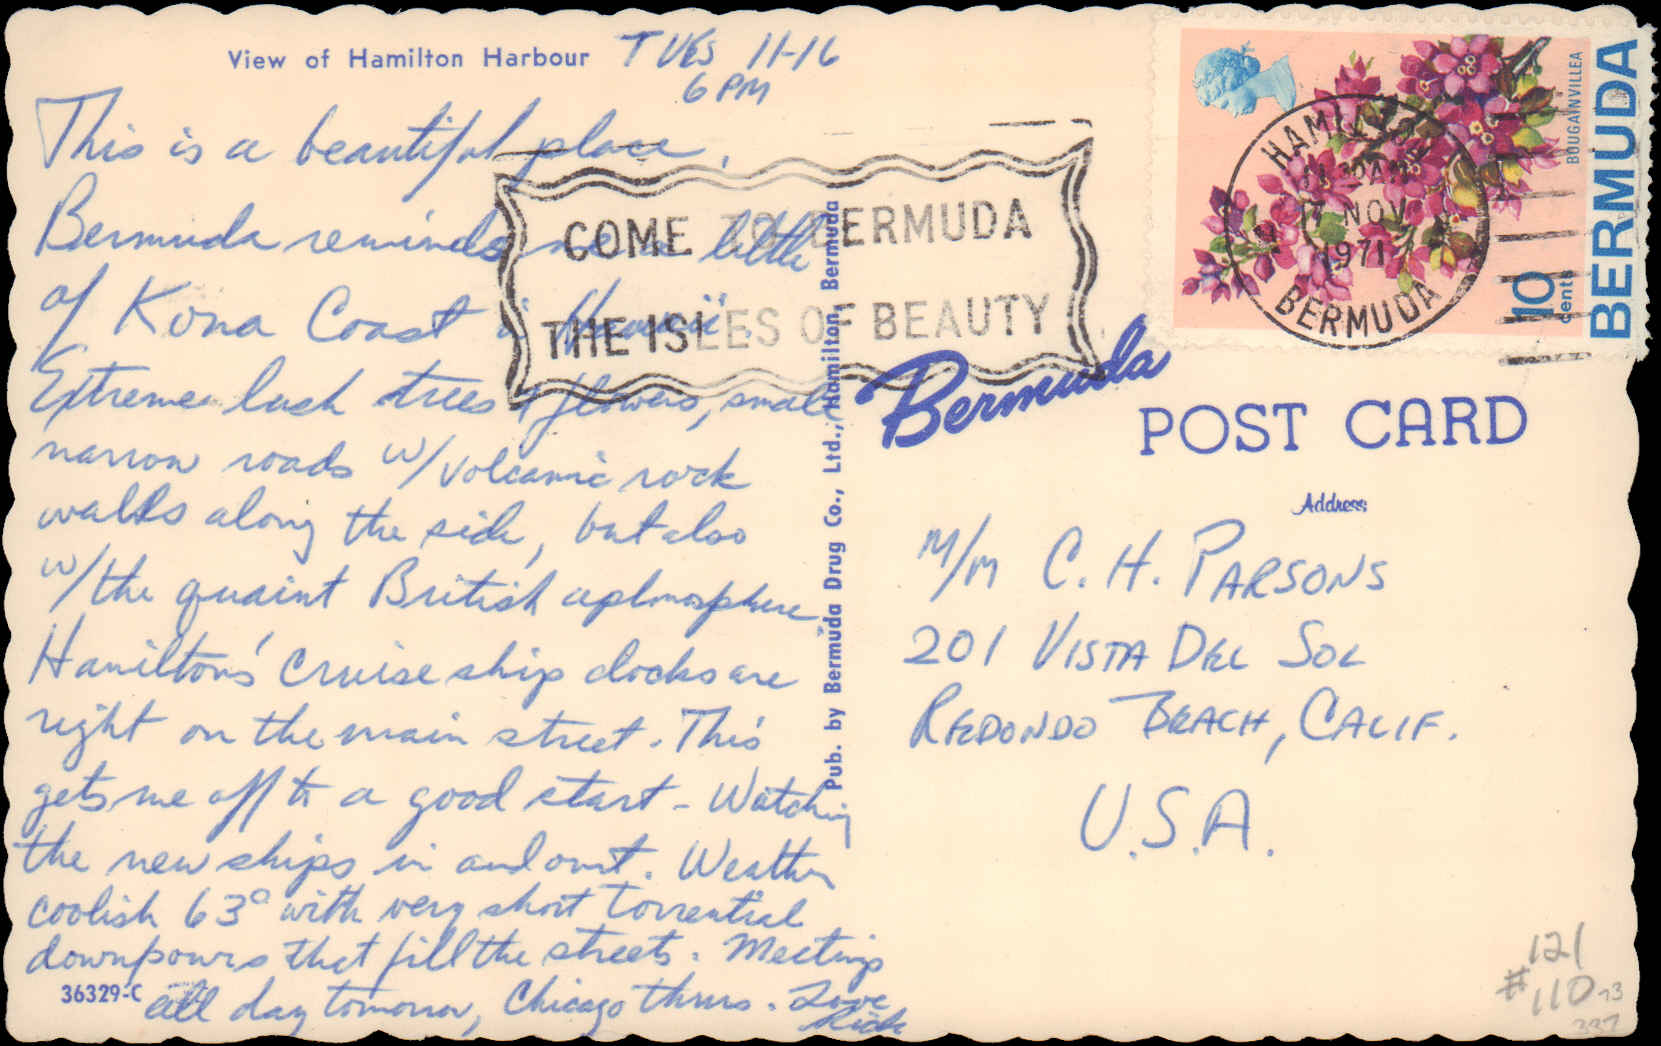 View of Hamilton Harbour
TUES 11-16
6 PM
This is a beautiful place.
Bermuda reminds me a little
of Kona Coast in Hawaii.
Extreme lush trees & flowers, small
narrow roads w/ volcanic rock
walls along the side, but also
w/ the quaint British aptmosphere.
Hamilton's cruise ship docks are
right on the main street. This
gets me off to a good start - Watching
the new ships in and out. Weather
coolish 63° with very short torrential
downpours that fill the streets. Meetings
all day tomorrow, Chicago thurs. Love
Rick
36329-C
COME TO BERMUDA
THE ISLES OF BEAUTY
Pub. by Bermuda Drug Co., Ltd., Hamilton, Bermuda
BOUGAINVILLEA
BERMUDA
10
cents
HAMILTON
17 NOV
1971
BERMUDA
Bermuda
POST CARD
Address
M/M C. H. PARSONS
201 VISTA DEL SOL
REDONDO BEACH, CALIF.
U.S.A.
121
#110